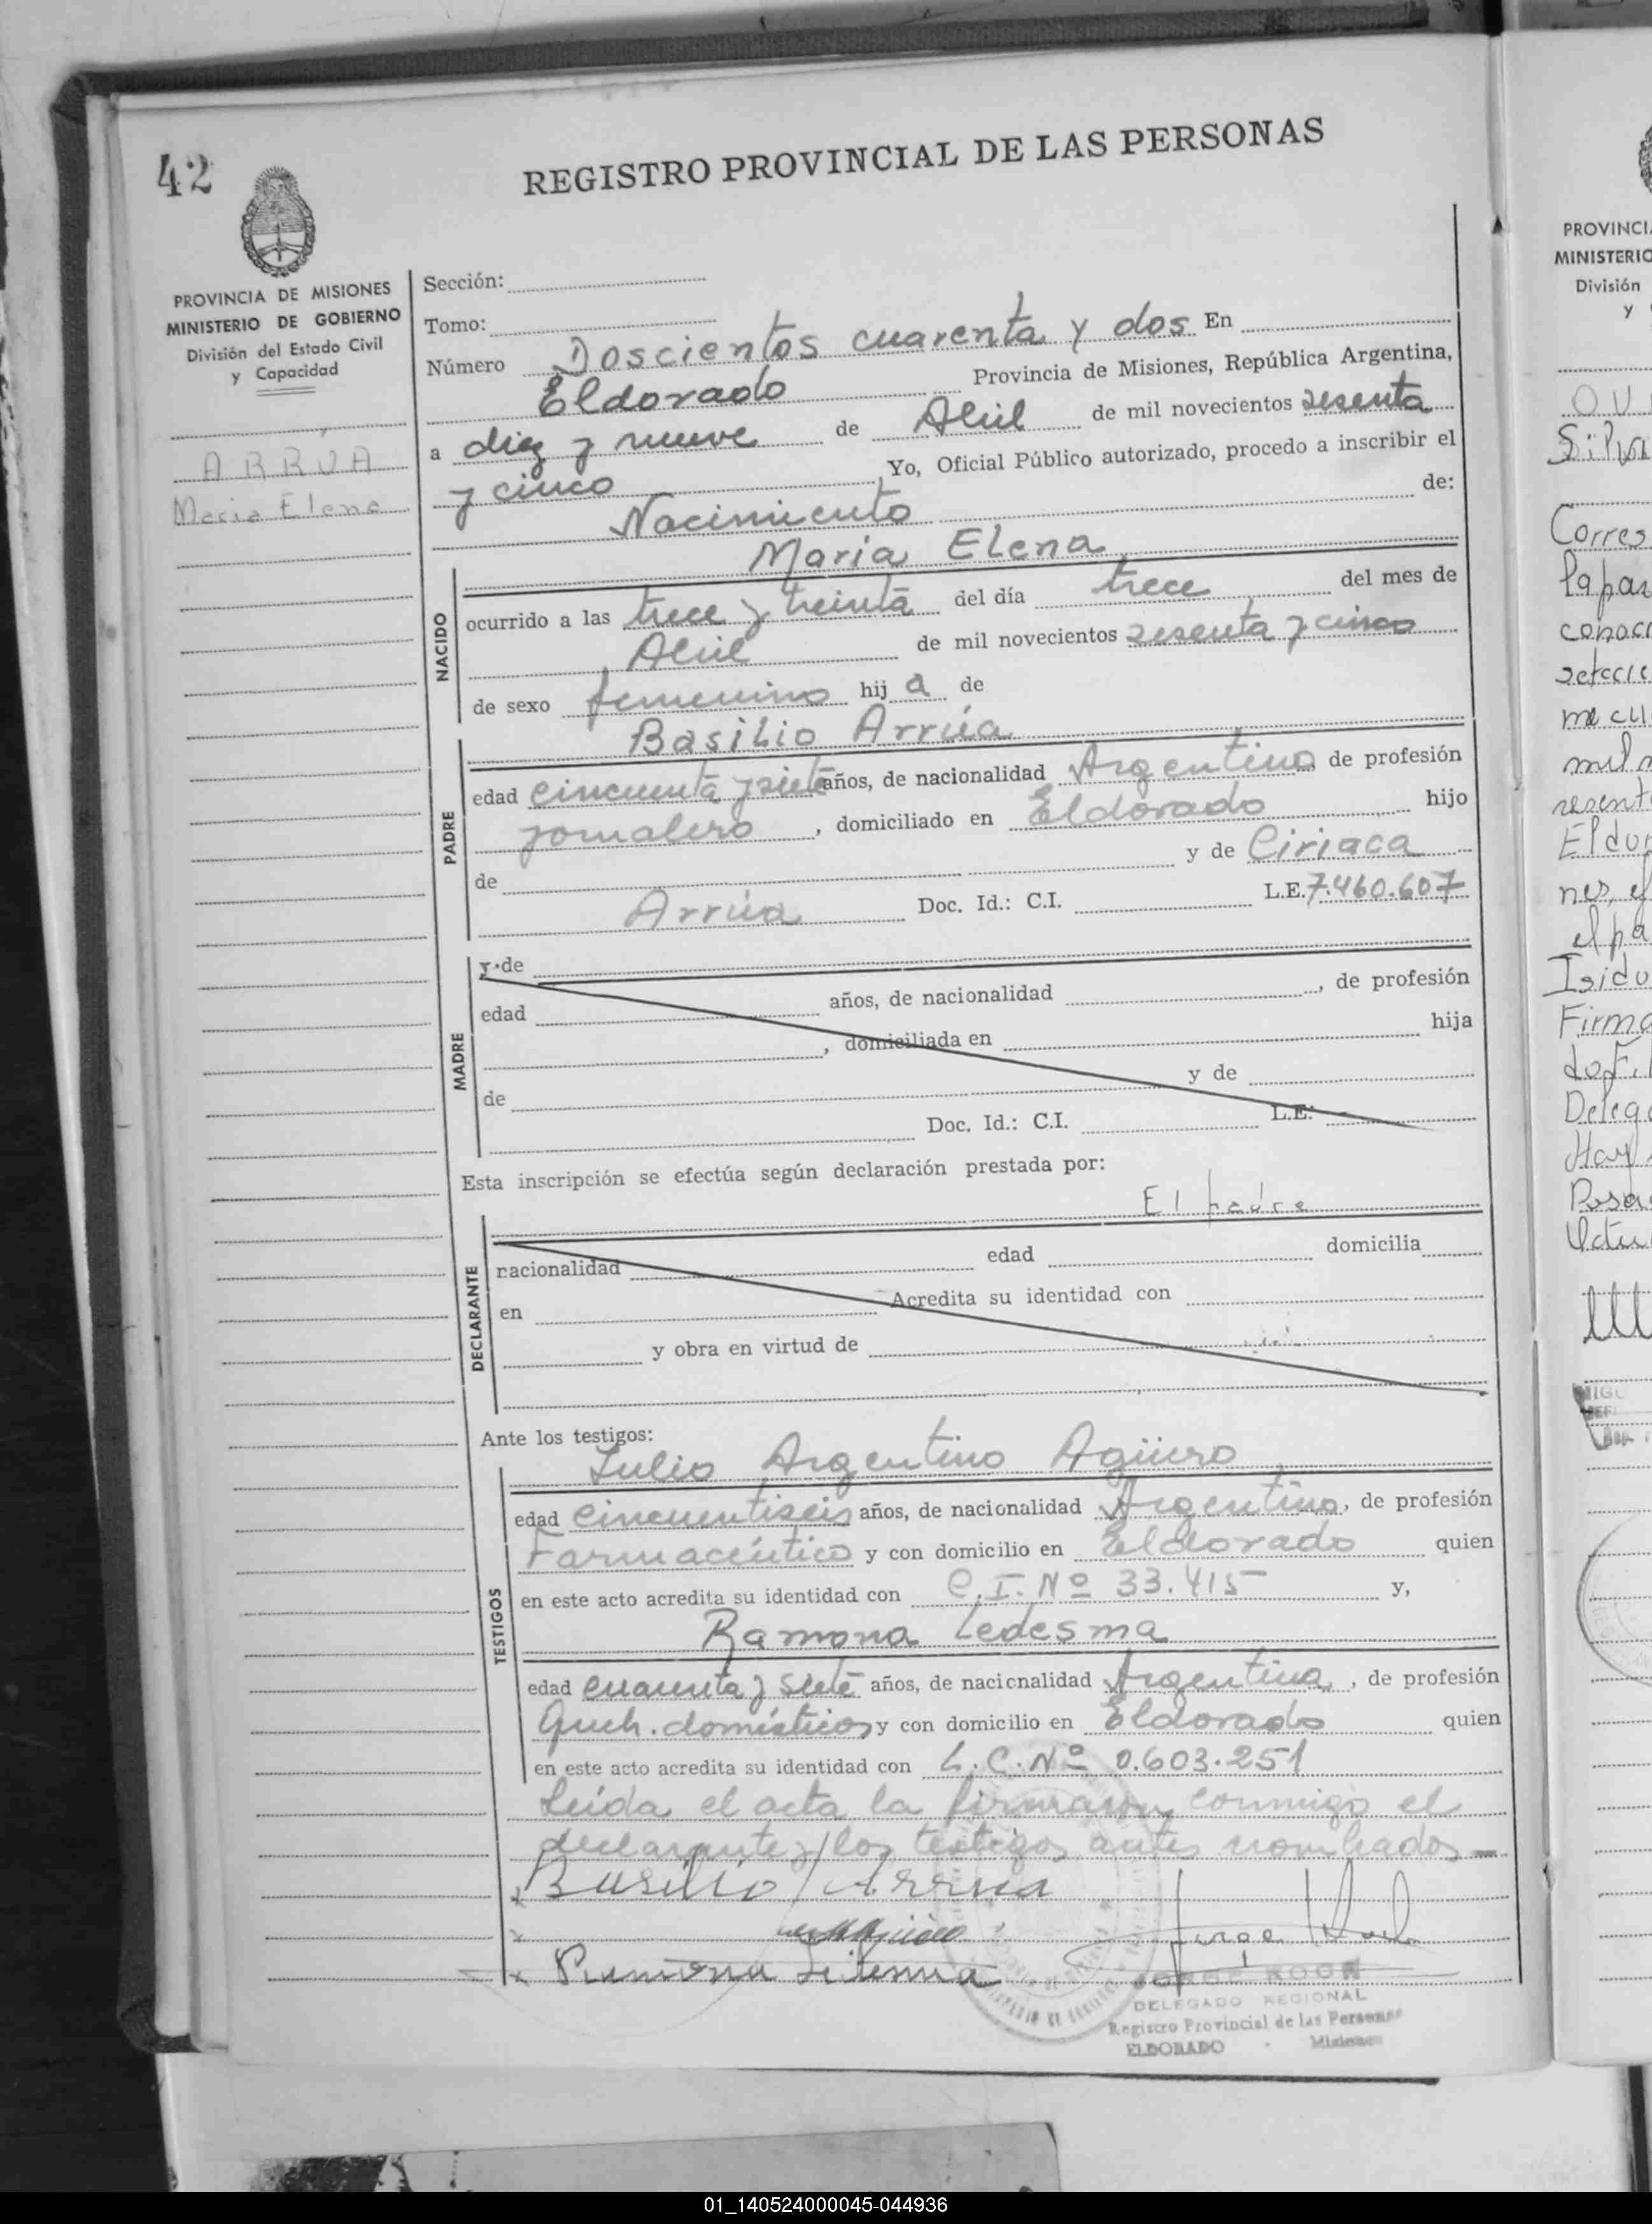 42
REGISTRO PROVINCIAL DE LAS PERSONAS
PROVINCIA DE MISIONES
MINISTERIO DE GOBIERNO
División del Estado Civil
y Capacidad
ARRÚA
Maria Elena
Sección:
Tomo:
Número Doscientos cuarenta y dos En
Eldorado Provincia de Misiones, República Argentina,
a diez y nueve de Abril de mil novecientos sesenta
y cinco Yo, Oficial Público autorizado, procedo a inscribir el
Nacimiento de:
Maria Elena
NACIDO
ocurrido a las trece y treinta del día trece del mes de
Abril de mil novecientos sesenta y cinco
de sexo femenino hija de
Basilio Arrúa
PADRE
edad cincuenta y siete años, de nacionalidad Argentina de profesión
jornalero, domiciliado en Eldorado hijo
de y de Ciriaca
Arrúa Doc. Id.: C.I. L.E. 7.460.607
MADRE
y de
edad años, de nacionalidad , de profesión
, domiciliada en hija
de y de
Doc. Id.: C.I. L.E:
Esta inscripción se efectúa según declaración prestada por:
El padre
DECLARANTE
nacionalidad edad domicilia
en Acredita su identidad con
y obra en virtud de
Ante los testigos:
Julio Argentino Agüero
TESTIGOS
edad cincuentiseis años, de nacionalidad Argentina, de profesión
Farmacéutico y con domicilio en Eldorado quien
en este acto acredita su identidad con C.I. Nº 33.415 y,
Ramona Ledesma
edad cuarenta y siete años, de nacionalidad Argentina, de profesión
Queh. domésticos y con domicilio en Eldorado quien
en este acto acredita su identidad con L.C. Nº 0.603.251
Leída el acta la firmaron conmigo el
declarante y los testigos antes nombados
x Basilio Arrua
x
x Ramona
JORGE KOCH
DELEGADO REGIONAL
Registro Provincial de las Personas
ELDORADO - Misiones
PROVINCI
MINISTERIO
División
y
Silva
Corres
conoci
Eldor
el pa
Isido
Firma
Deleg
01_140524000045-044936